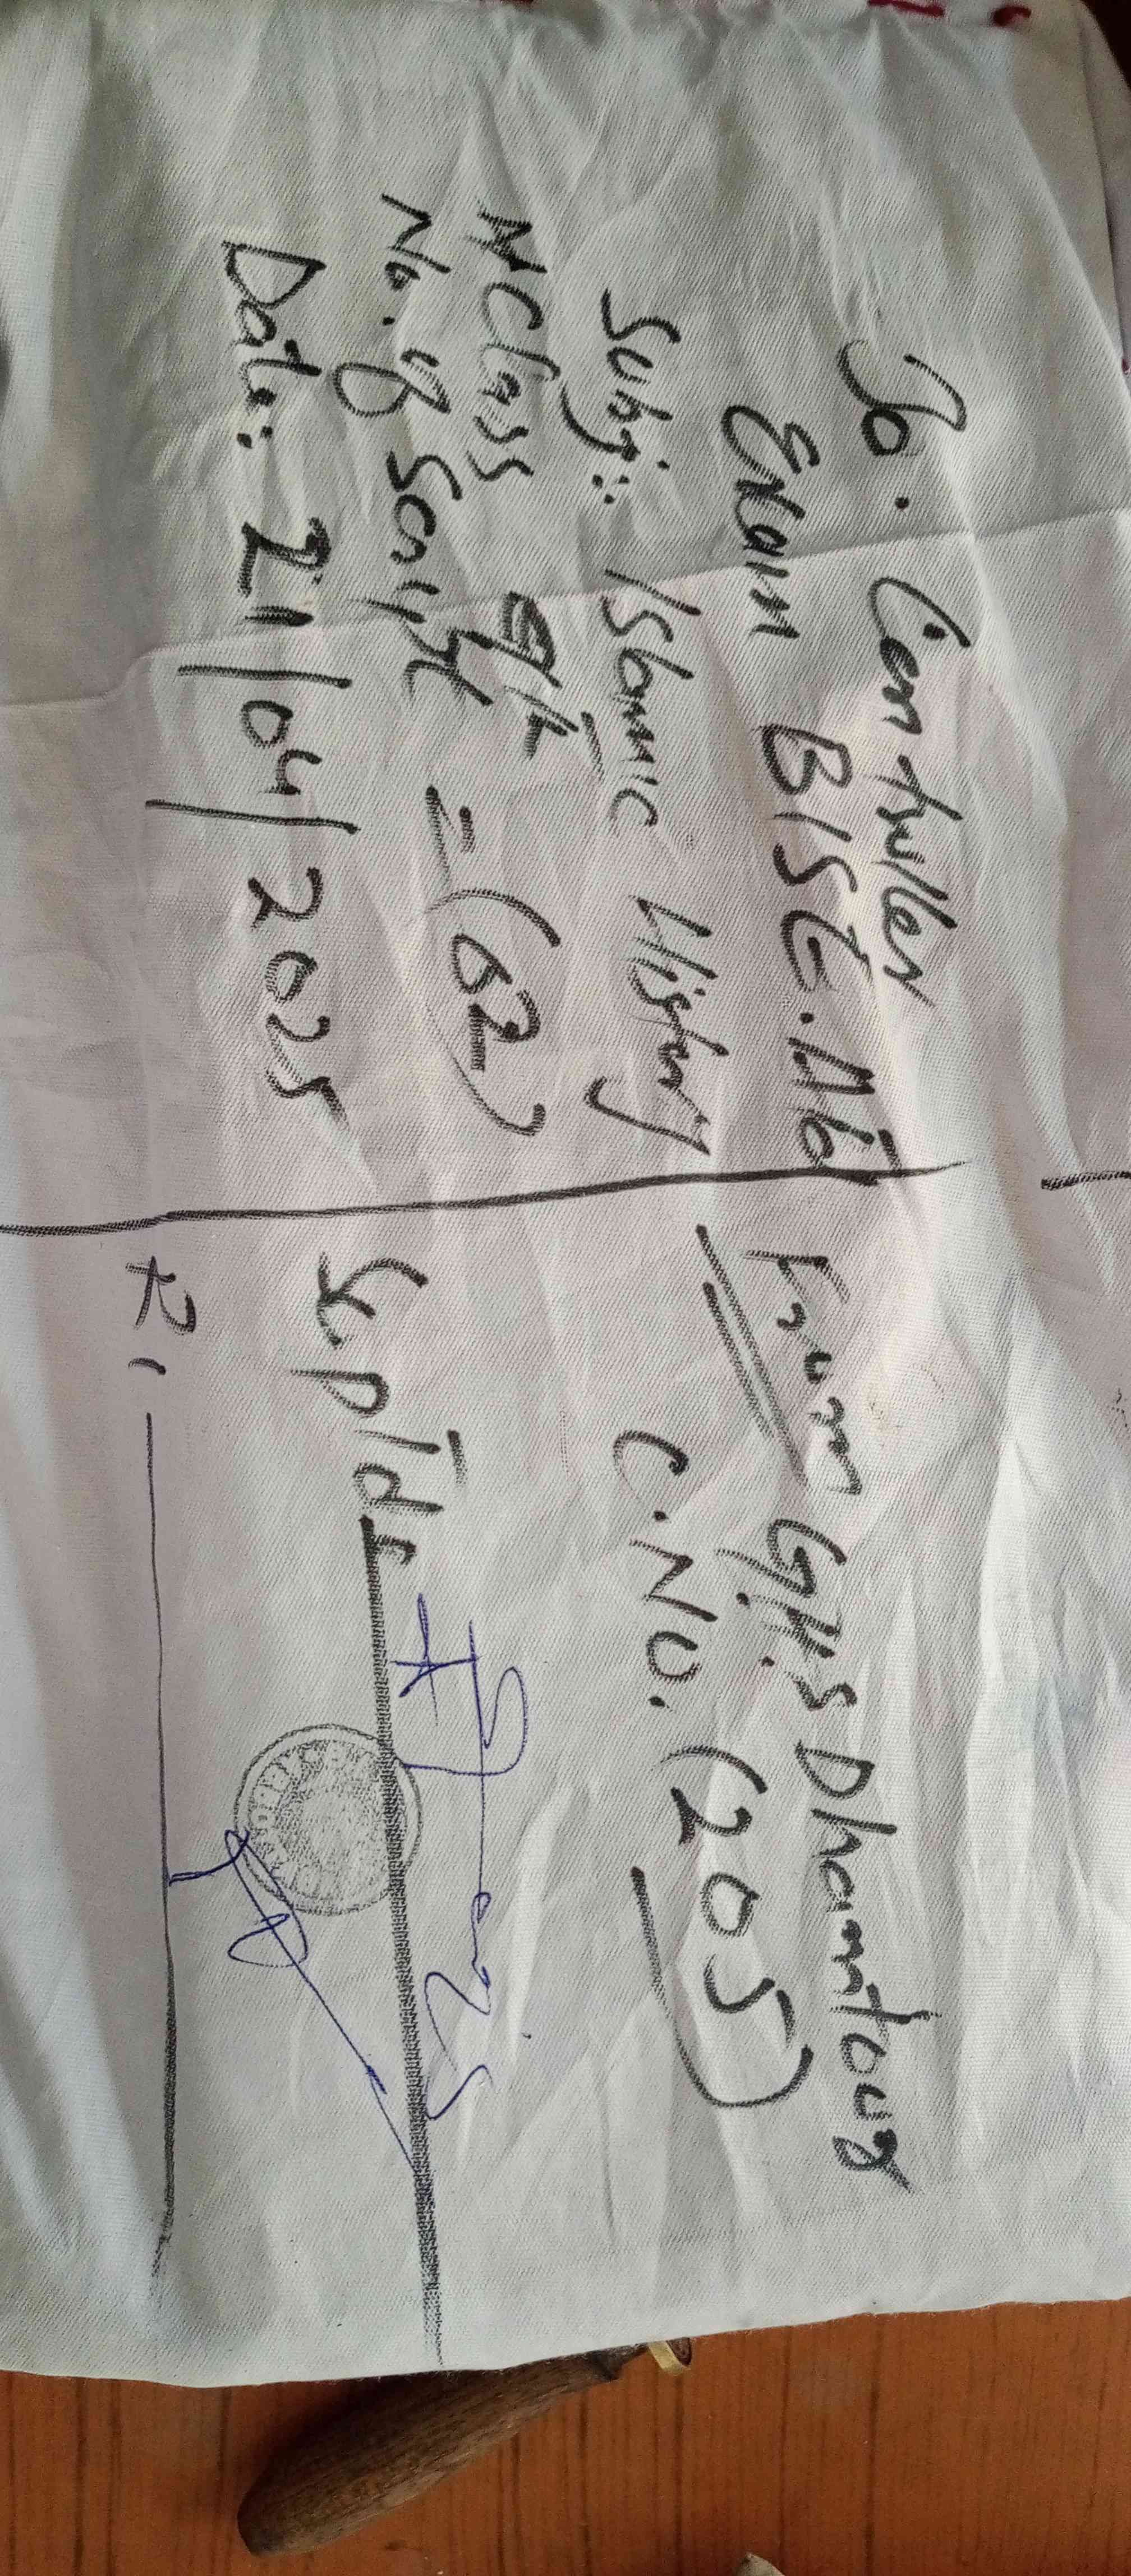 To. Controller
Exam BISE. Atd
Subj: Islamic History
Class 9th
No. of Script = (02)
Date: 21/04/2025
From G.H.S Dhamtour
C.No. (205)
S.pTdt
R1